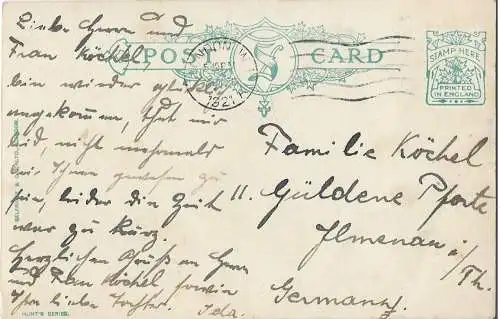 Liebe Herrn und
Frau Köchel
bin wieder glücklich
angekommen, that mir
leid, nicht mehrmals
bei Ihnen gewesen zu
sein, leider die Zeit
war zu kurz.
Herzlichen Gruss an Herrn
und Frau Köchel sowie
Ihre liebe Tochter. Ida.
POST CARD
STAMP HERE
PRINTED
IN ENGLAND
Familie Köchel
11. Güldene Pforte
Ilmenau i/Th.
Germany
HUNT'S SERIES.